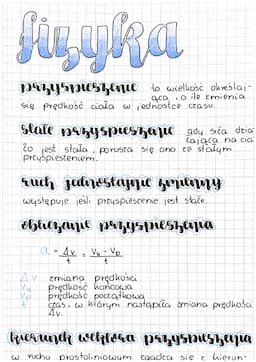 fizyka
przyspieszenie to wielkość określaj-
ąca, o ile zmienia
się prędkość ciała w jednostce czasu.
stałe przyspieszenie gdy siła dzia-
łająca na cia
ło jest stała, porusza się ono ze stałym
przyspieszeniem.
ruch jednostajnie zmienny
występuje jeśli przyspieszenie jest stałe.
obliczanie przyspieszenia
a = Δv/t = Vk - Vp/t
Δv zmiana prędkości
Vk prędkość końcowa
Vp prędkość początkowa
t czas, w którym nastąpiła zmiana prędkości
Δv.
kierunek wektora przyspieszenia
w ruchu prostoliniowym zgadza się z kierun-